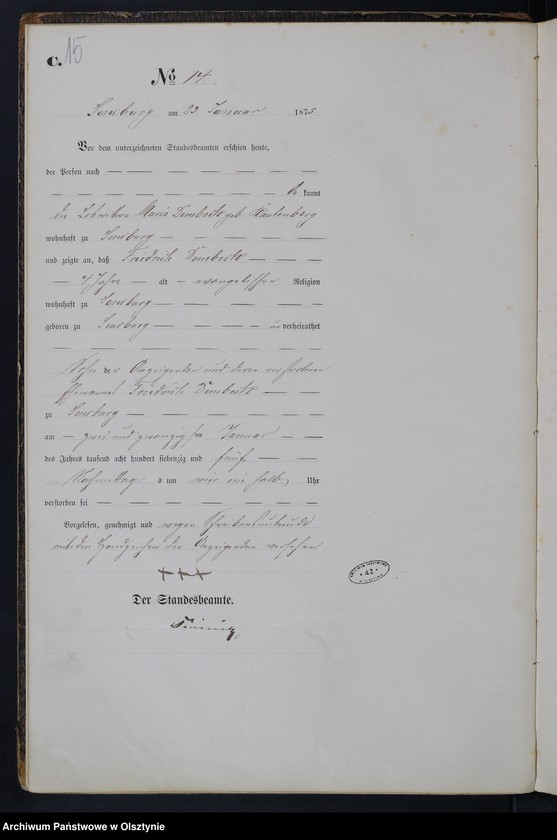 C. 15
No 14
Sensburg am 23 Januar 1875
Vor dem unterzeichneten Standesbeamten erschien heute,
der Person nach
be kannt
die Marie Dembeck geb. Rautenberg
wohnhaft zu Sensburg
und zeigte an, daß Friedrich Dembeck
4 Jahre alt evangelischer Religion
wohnhaft zu Sensburg
geboren zu Sensburg un verheirathet
Sohn der Anzeigenden und deren verstorbenen
Ehemannes Friedrich Dembeck
zu Sensburg
am zwei und zwanzigsten Januar
des Jahres tausend acht hundert siebenzig und fünf
Nachmittags um ein halb Uhr
verstorben sei
Vorgelesen, genehmigt und wegen Schreibensunkunde
mit den Handzeichen der Anzeigenden versehen
+++
Der Standesbeamte.
42
Archiwum Państwowe w Olsztynie